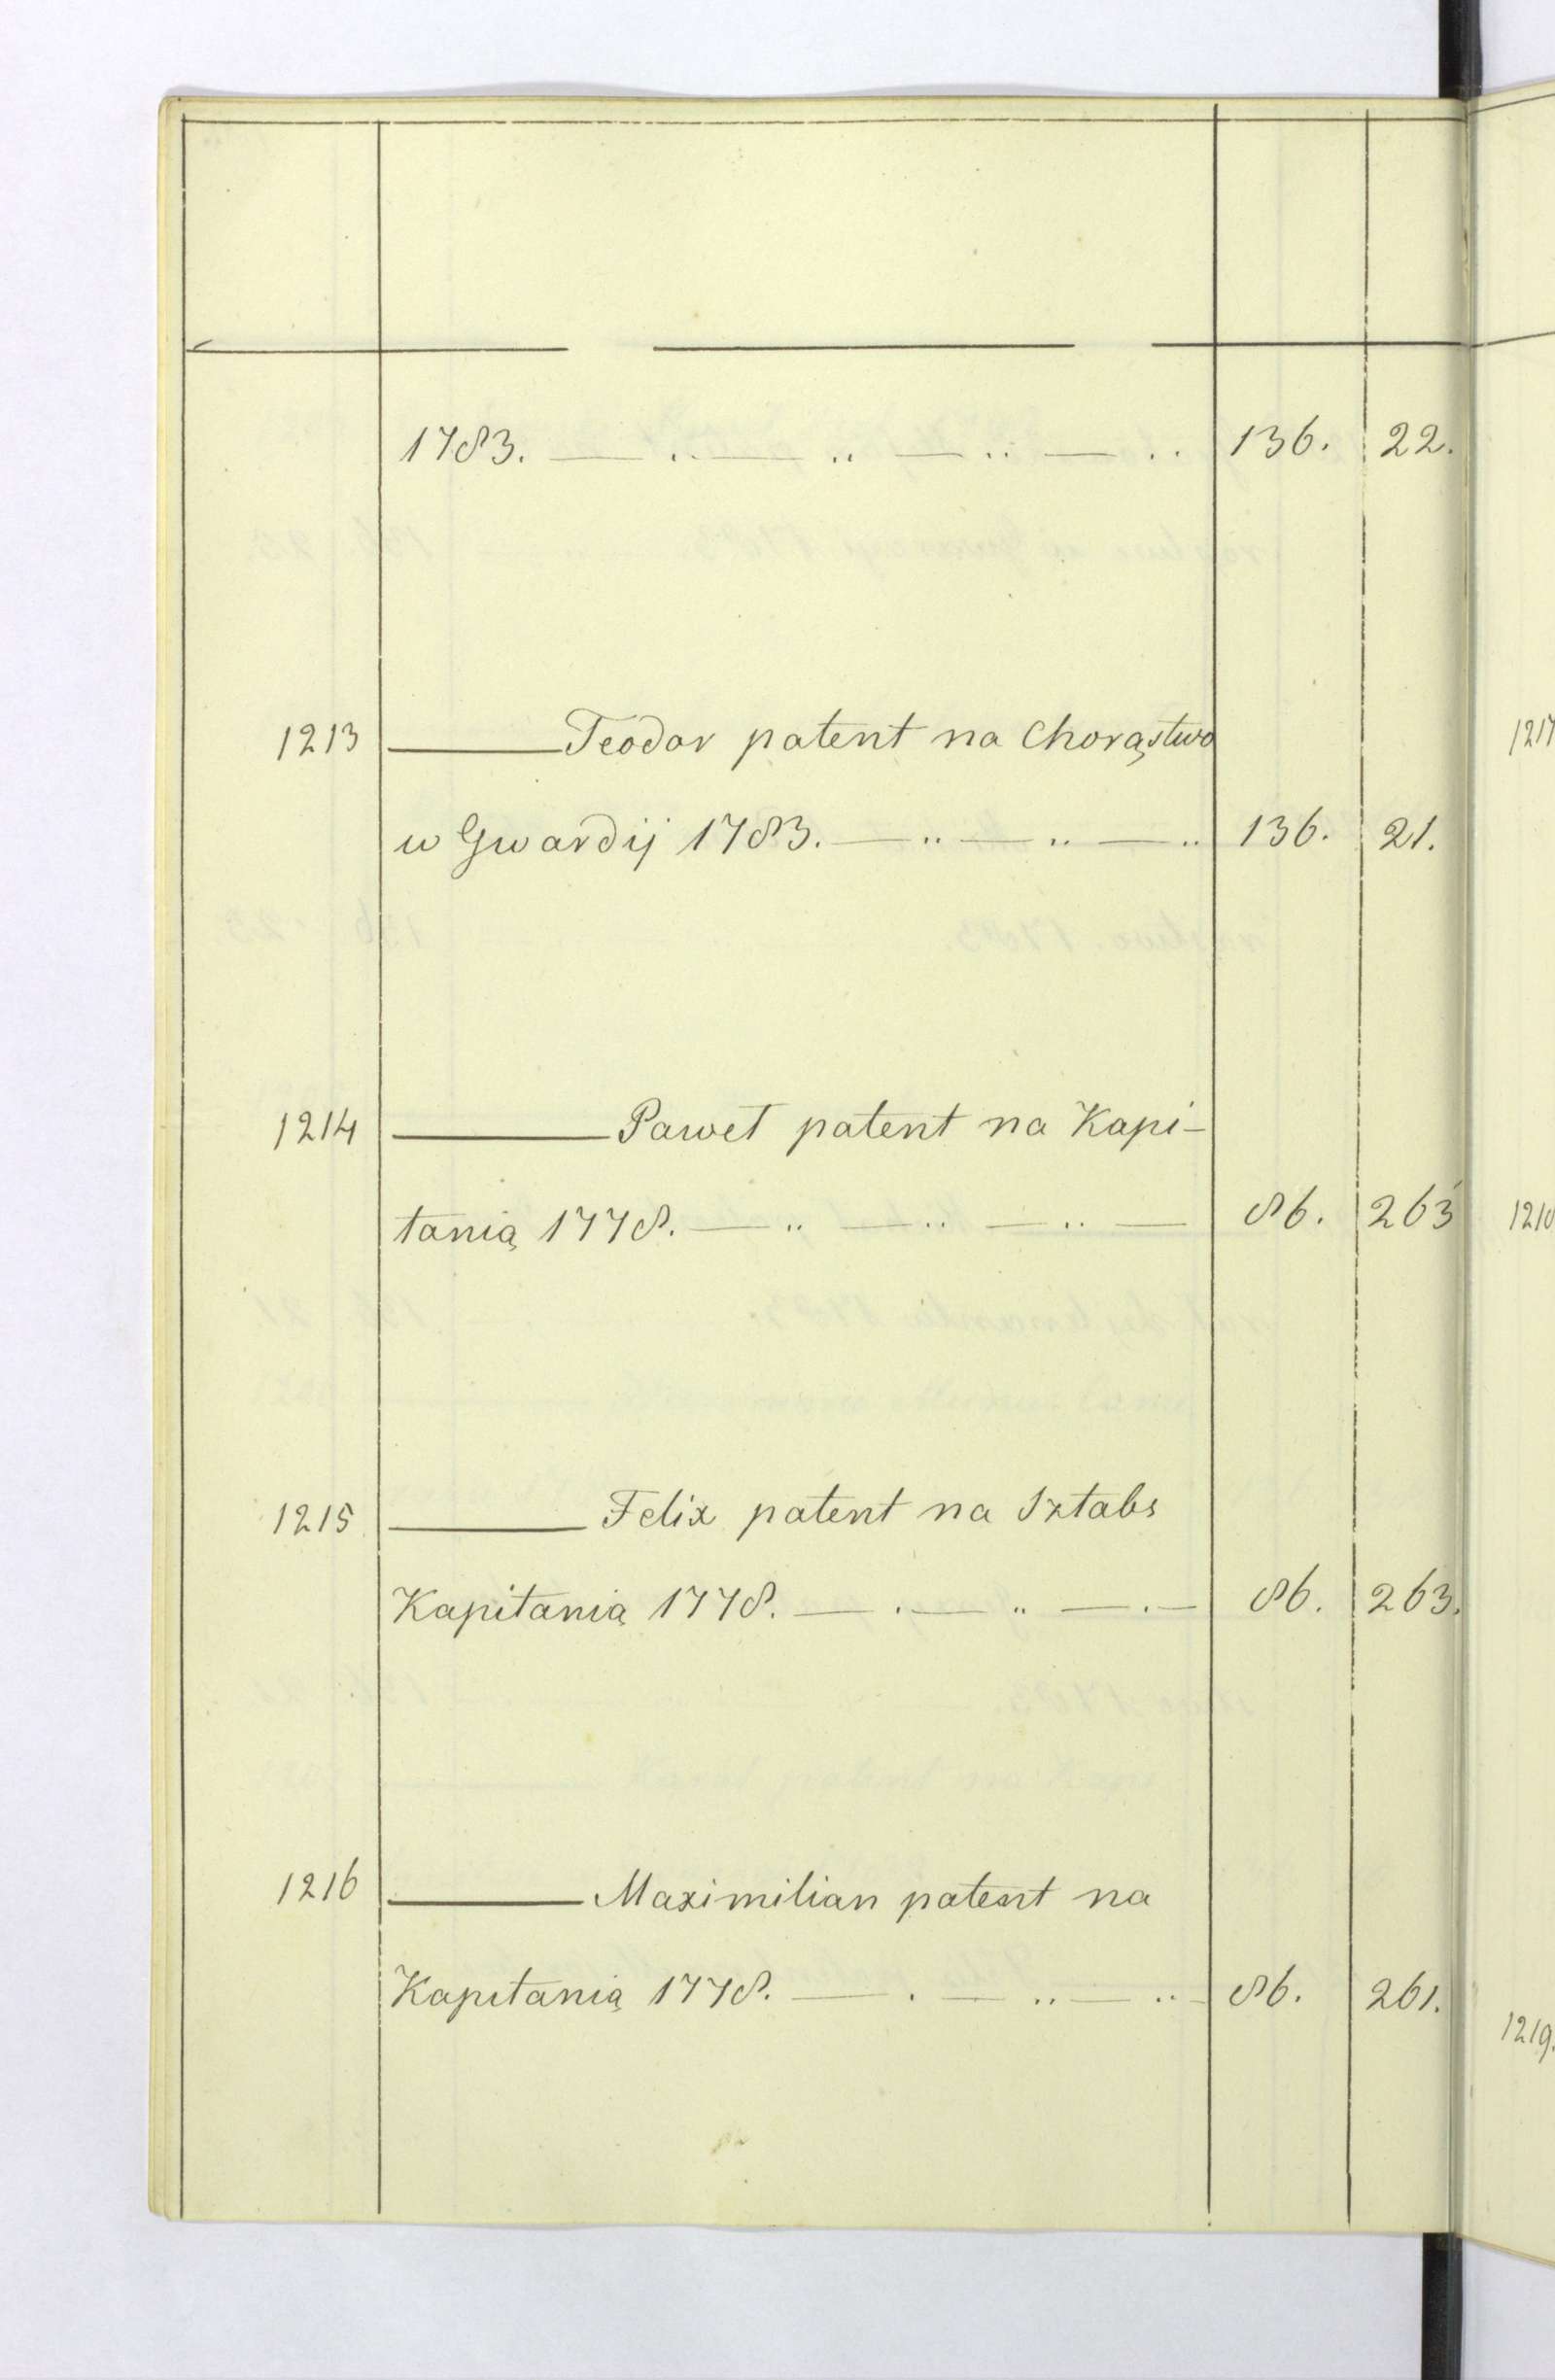 1783. — .. — .. — .. — .. 136. 22.
1213 ——— Teodor patent na Chorąstwo
w Gwardij 1783. — .. — .. — .. 136. 21.
1214 ——— Paweł patent na Kapi-
tanią 1778. — .. — .. — .. — 86. 263
1215 ——— Felix patent na Sztabs
Kapitanią 1778. — . — .. — . — 86. 263.
1216 ——— Maximilian patent na
Kapitanią 1778. — . — .. — .. 86. 261.
1217
1219.